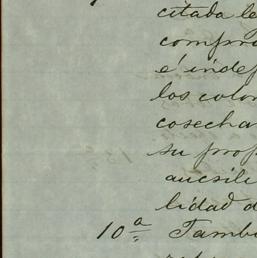 citada le
compro
é indep
los colon
cosecha
su prop
aucsili
lidad d
10ª Tambi